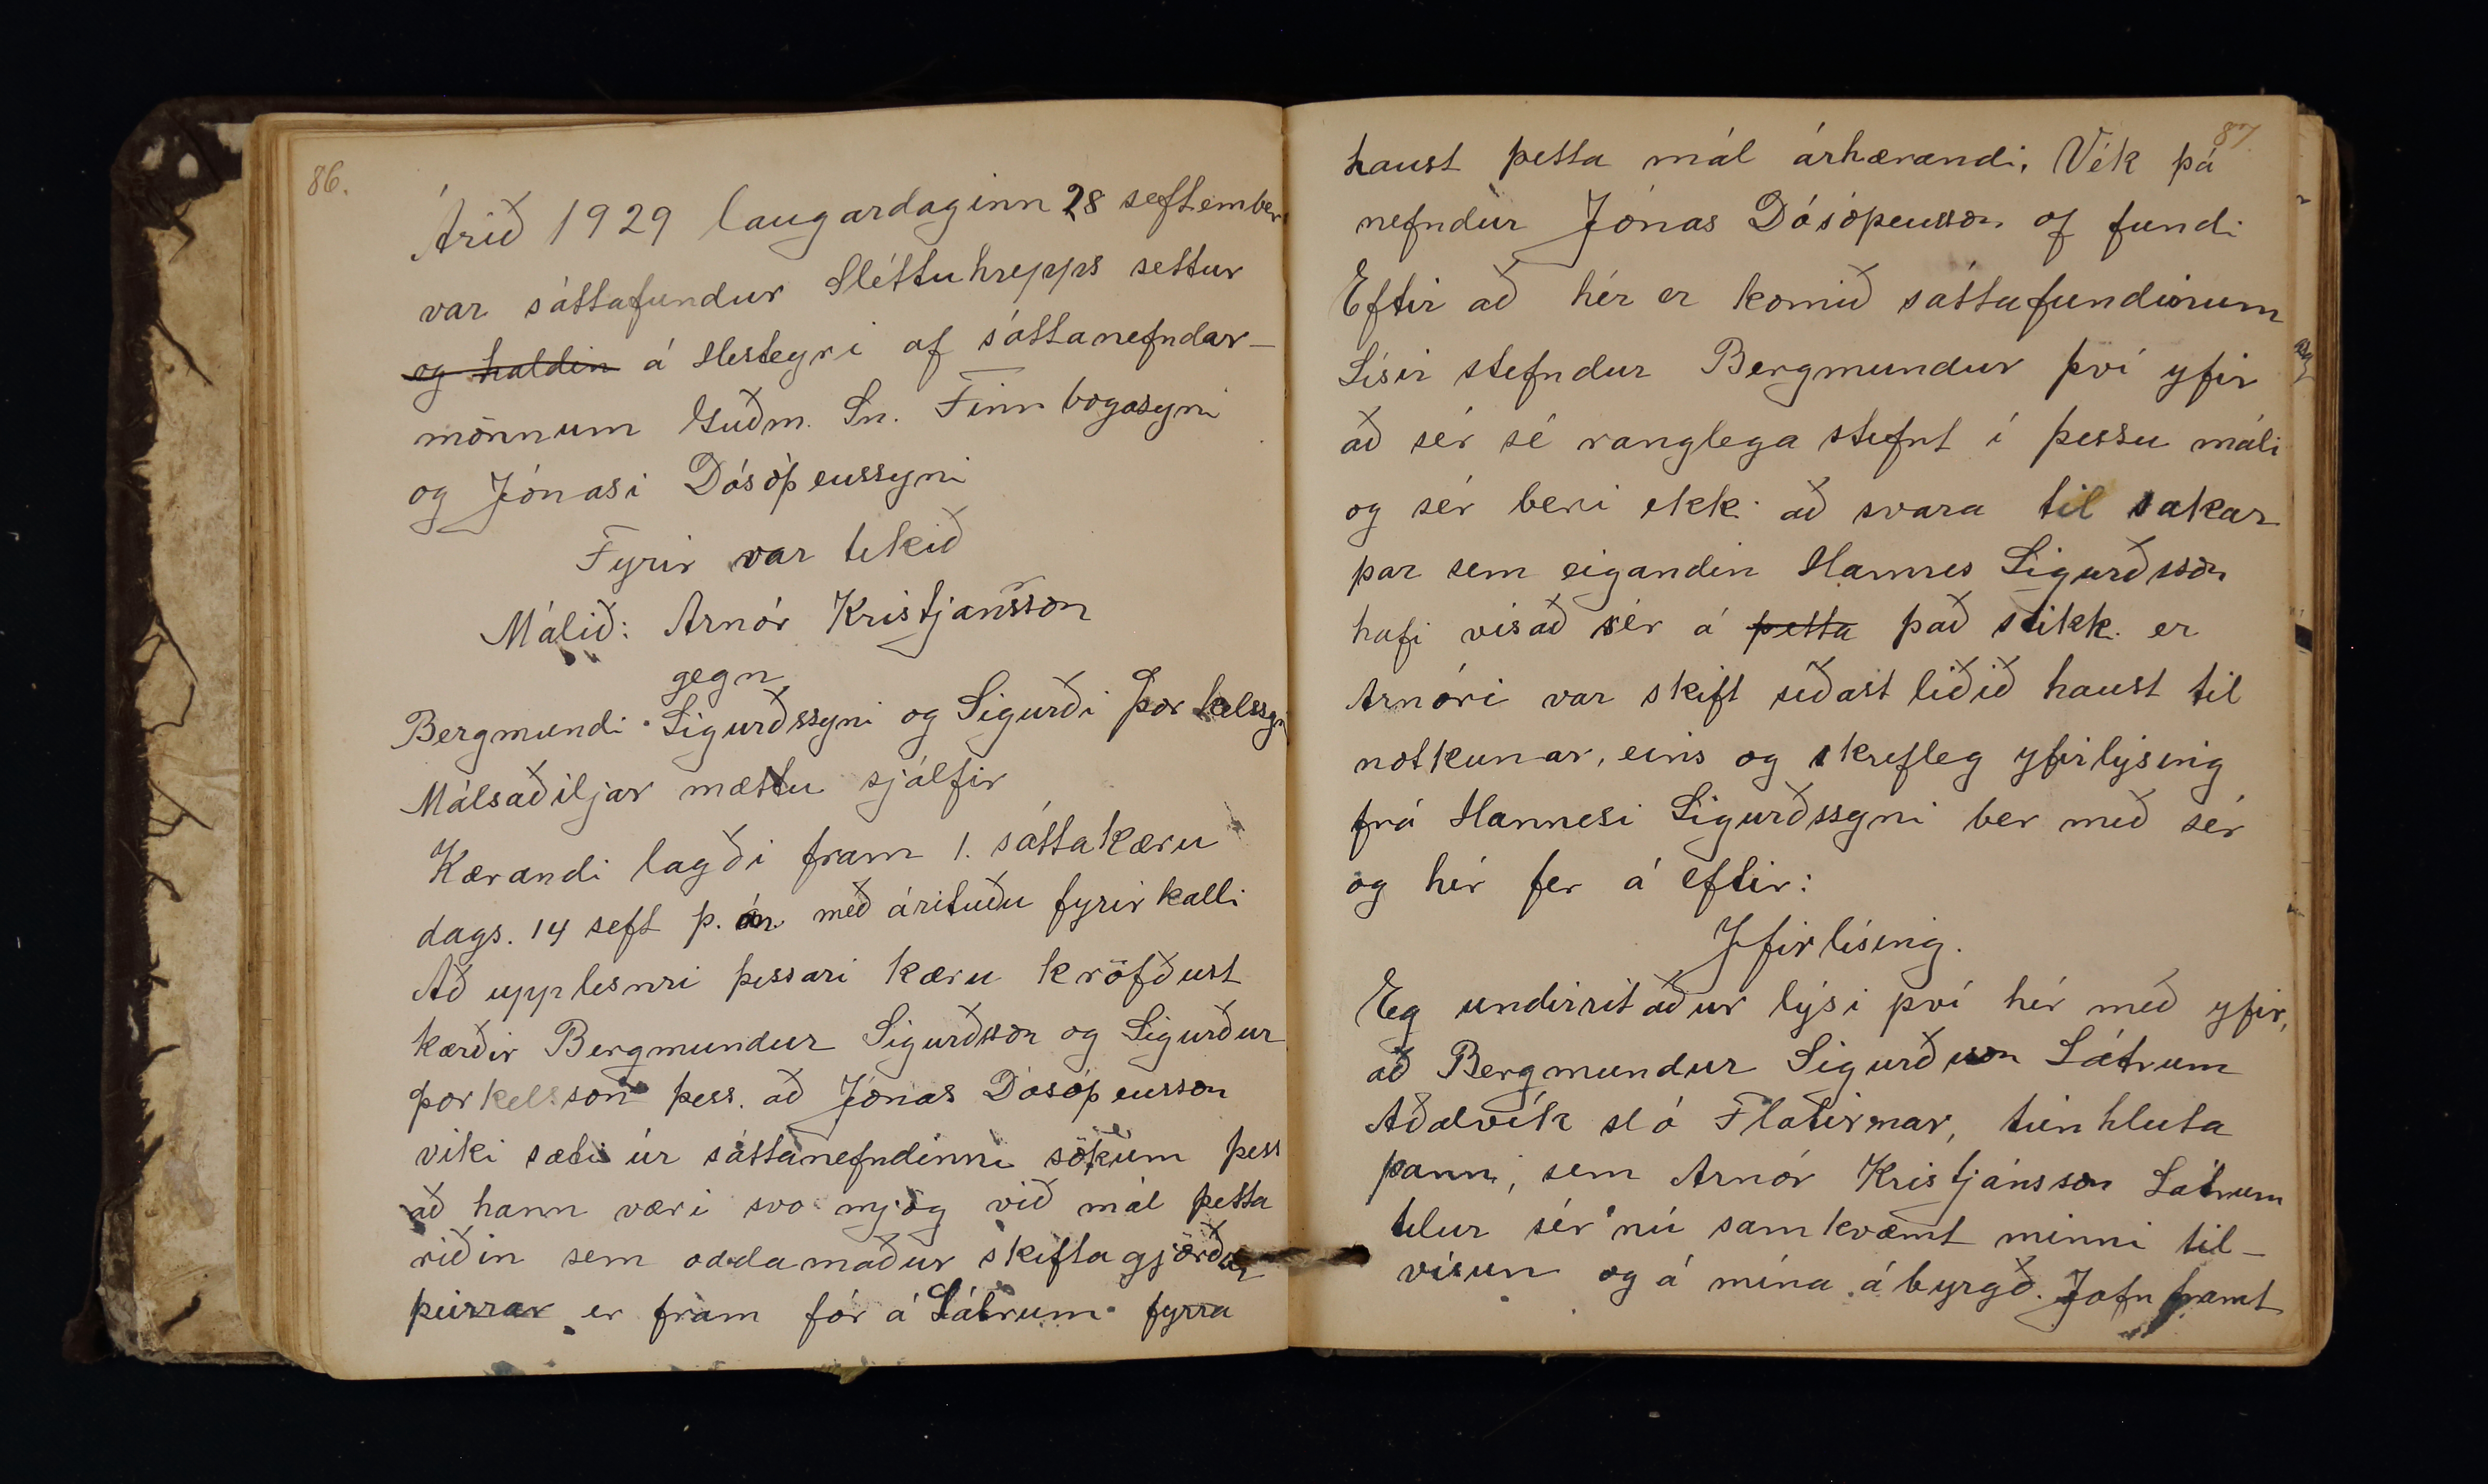 86.
Árið 1929 laugardaginn 28 seftember
var sáttafundur Sléttuhrepps settur
og haldin á Hesteyri af sáttanefndar-
mönnum Guðm. Sn. Finnbogasyni
og Jónasi Dósóþeussyni
Fyrir var tekið
Málið: Arnór Kristjansson
gegn
Bergmundi Sigurðssyni og Sigurði Þorkelssyni
Málsaðiljar mættu sjálfir
Kærandi lagði fram 1. sáttakæru
dags. 14 seft þ. ár með árituðu fyrirkalli
Að upplesnri þessari kæru kröfðust
kærðir Bergmundur Sigurðsson og Sigurður
Þorkelsson þess að Jónas Dósóþeusson
viki sæti úr sáttanefndinni sökum þess
að hann væri svo mjög við mál þetta
riðin sem oddamaður skiftagjörðar
þeirrar er fram fór á Látrum fyrra
87
haust þetta mál árhærandi. Vék þá
nefndur Jónas Dósóþeusson af fundi
Eftir að hér er komið sáttafundinum
Lísir stefndur Bergmundur því yfir
að sér sé ranglega stefnt í þessu máli
og sér beri ekki að svara til sakar
þar sem eigandin Hannes Sigurðsson
hafi vísað sér á þetta það stikki er
Arnóri var skift síðast liðið haust til
notkunar, eins og skrifleg yfirlýsing
frá Hannesi Sigurðssyni ber með sér
og hér fer á eftir:
Yfirlísing.
Eg undirritaður lýsi því hér með yfir,
að Bergmundur Sigurðsson Látrum
Aðalvík sló Flatirnar, túnhluta
þann, sem Arnór Kristjánsson Látrum
telur sér nú samkvæmt minni til-
vísun og á mína ábyrgð. Jafnframt